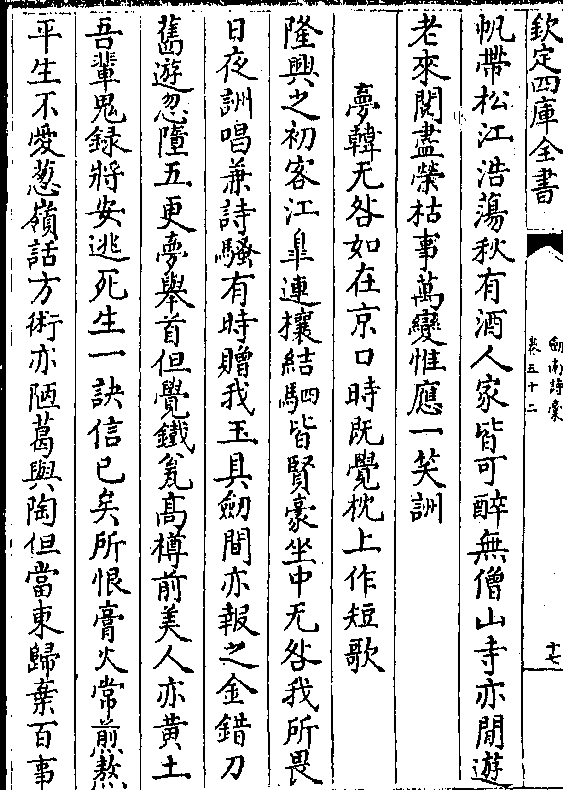 欽定四庫全書
劍南詩稾
卷五十二
十七
帆帶松江浩蕩秋有酒人家皆可醉無僧山寺亦閒遊
老來閱盡榮枯事萬變惟應一笑詶
夢韓无咎如在京口時既覺枕上作短歌
隆興之初客江臯連攘結駟皆賢豪坐中无咎我所畏
日夜詶唱兼詩騷有時贈我玉具劒間亦報之金錯刀
舊遊忽墮五更夢舉首但覺鐵瓮髙樽前美人亦黄土
吾輩鬼録將安逃死生一訣信已矣所恨膏火常煎熬
平生不愛葱嶺話方術亦陋葛與陶但當東歸棄百事